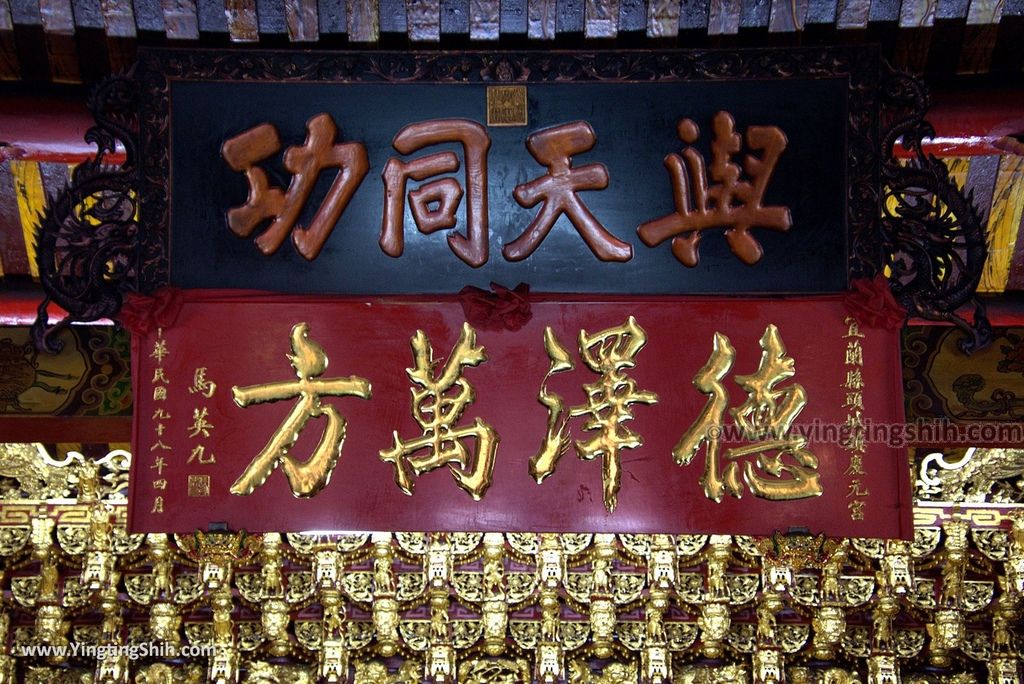 與天同功
宜蘭縣頭城鎮慶元宮
德澤萬方
馬英九
中華民國九十八年四月
www.yingtingshih.com
www.YingtingShih.com